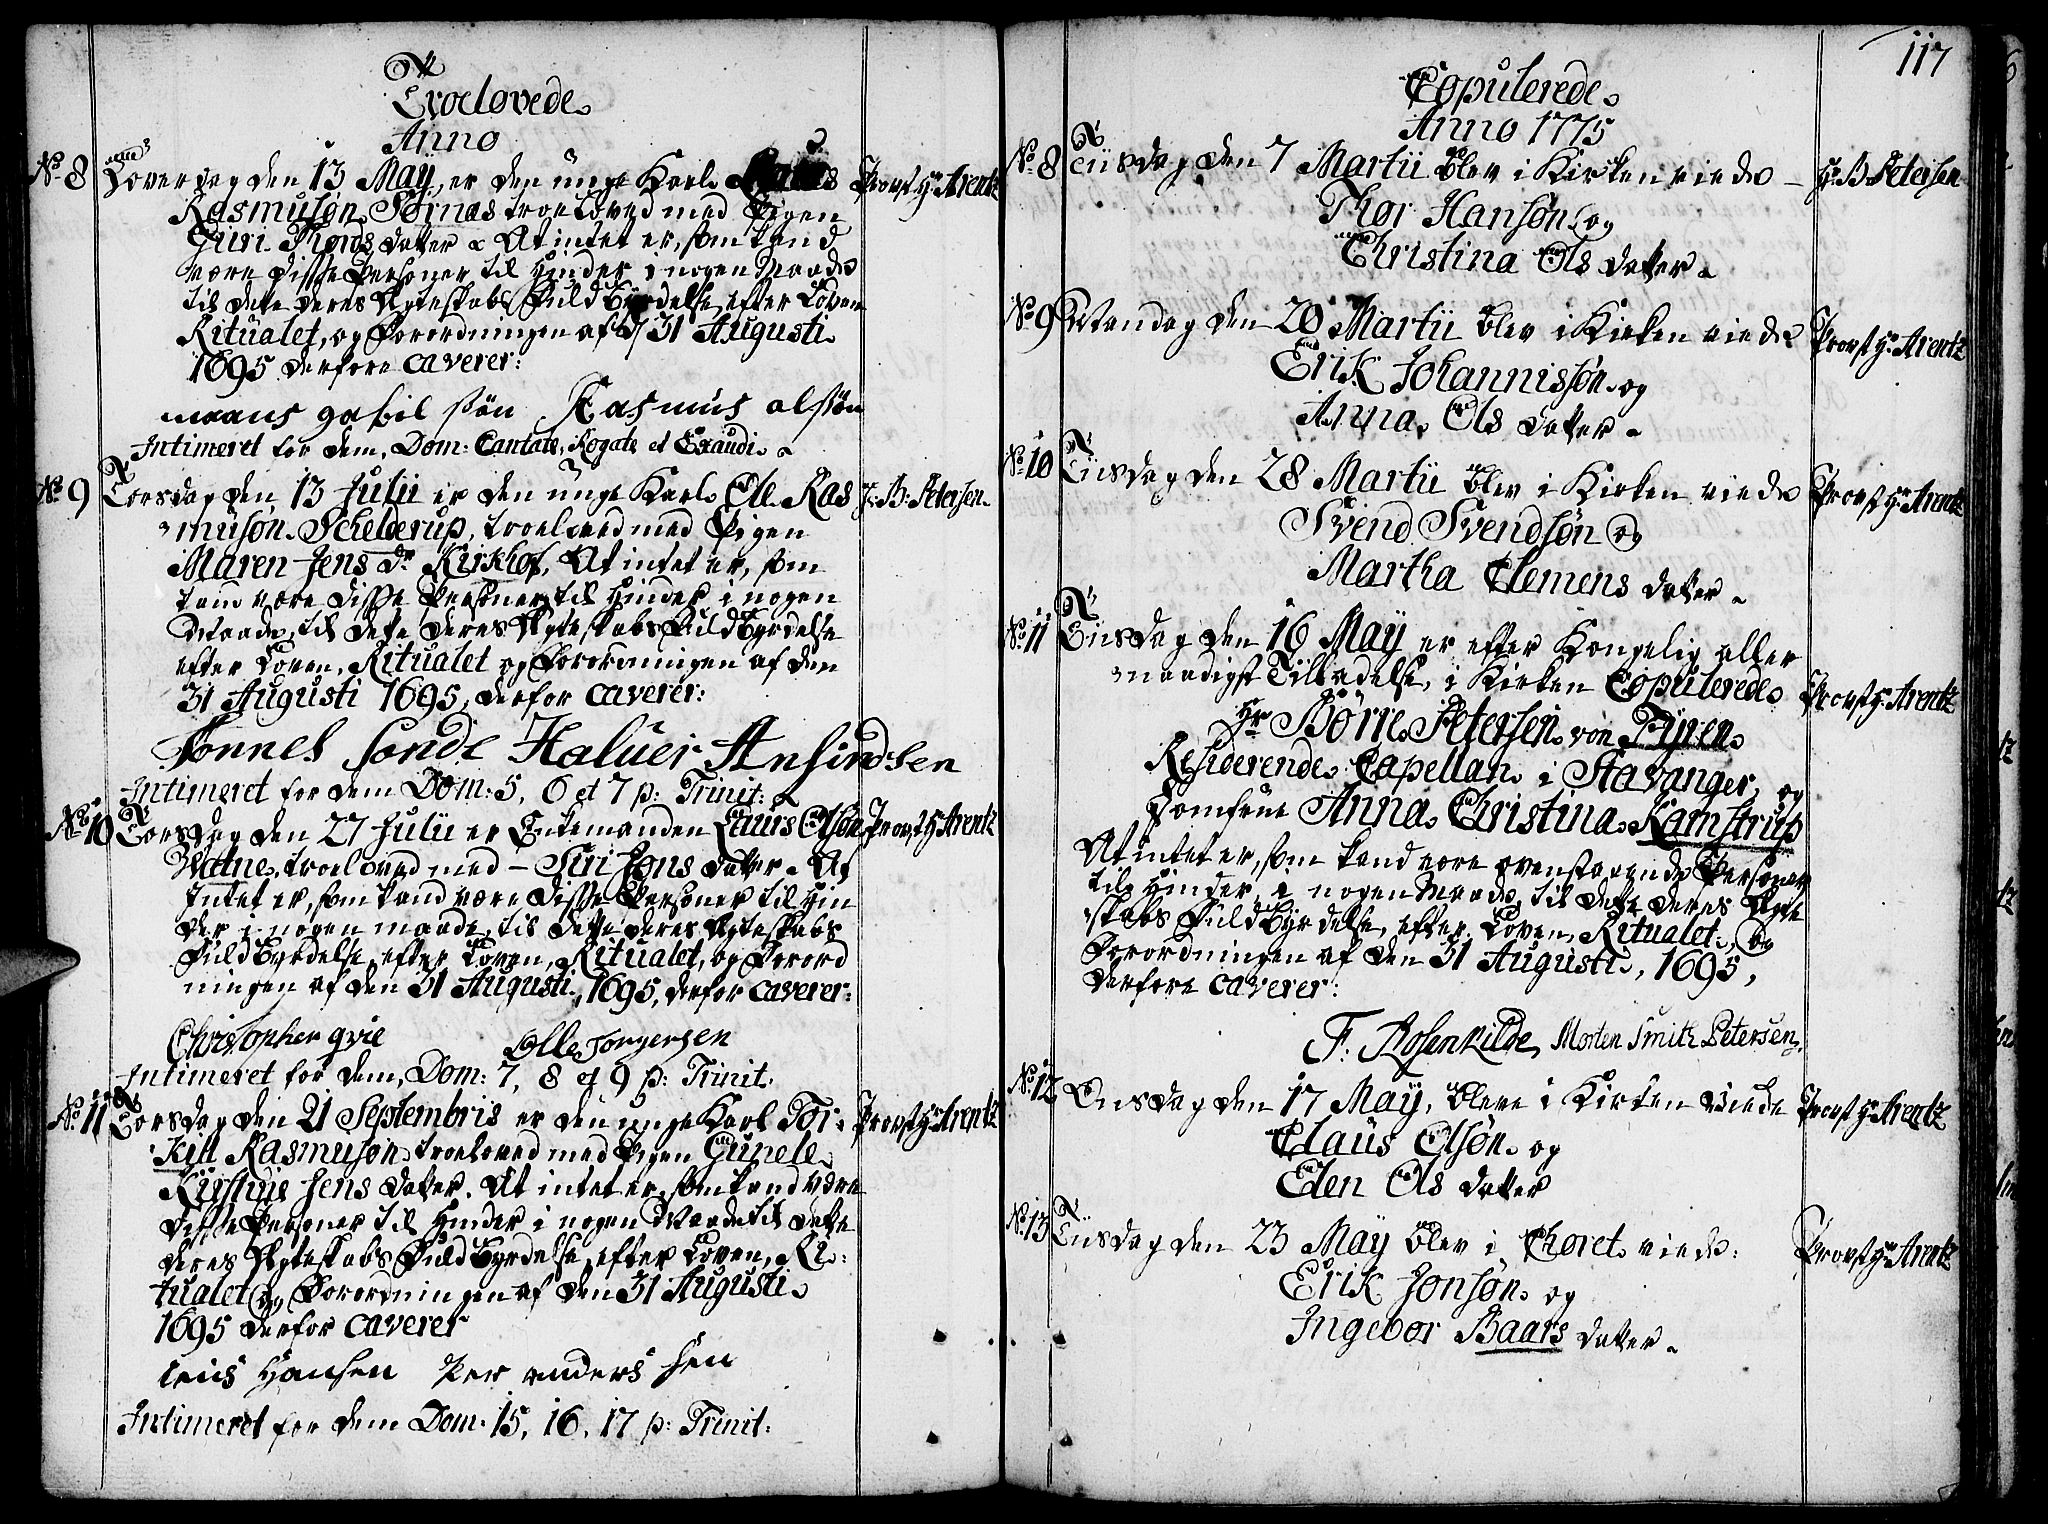 Troelovede
Anno
No 8 Løverdag den 13 May, er den unge Karl Provst Hr Arentz
Rasmusøn Sørnas troeloved med Pigen
Guri Thords datter At intet er, som kand
være disse Persohner til Hinder i nogen Maade
til dette deres Ægteskabs Fuldbyrdelse efter Loven
Ritualet, og Forordningen af d 31 Augusti
1695 derfore caverer:
maans gabil søn Rasmus olsøn
Intimeret for dem, Dom: Cantate, Rogate et Exaudi
No 9 Torsdag den 13 Julii er den unge Karl Ole Ras H: B: Petersen
musøn Schelderup, troeloved med Pigen
Maren Jens dr Kirkhof, At intet er, som
kand være disse Persohner til Hinder i nogen
Maade, til dette deres Ægteskabs Fuldbyrdelse
efter Loven, Ritualet og Forordningen af den
31 Augusti 1695, derfor caverer:
Tønnes Sonde Haluer Ansindsen
Intimeret for dem Dom: 5, 6 et 7 p: Trinit:
No 10 Torsdag den 27 Julii er Enkemanden Laurs Olsøn Provst Hr Arentz
Watne, troeloved med – Siri Jons datter At
Intet er, som kand være disse Persohner til Hin
der i nogen maade, til dette deres Ægteskabs
Fuldbyrdelse, efter Loven, Ritualet, og Forord
ningen af den 31 Augusti, 1695, derfor caverer:
Christopher qvie Olle Jorgersen
Intimeret for dem, Dom: 7, 8 et 9 p: Trinit:
No 11 Torsdag den 21 Septembris er den unge Karl Tor: Provst Hr Arentz
Kill Rasmusøn troeloved med Pigen Gunele
Kirstine Jens datter. At intet er, som kand være
disse Persohner til Hinder i nogen Maade til dette
deres Ægteskabs Fuldbyrdelse, efter Loven, Ri:
tualet og Forordningen af den 31 Augusti
1695 derfor caverer
iens Hansen Per anders sen
Intimeret for dem Dom: 15, 16, 17 p: Trinit:
117
Copulerede
Anno 1775
No 8 Tiisdag den 7 Martii blev i Kirken viede – H: B: Petersen
Thor Hansøn og
Christina Ols datter
No 9 Mandag den 20 Martii blev i Kirken viede Provst Hr Arentz
Erik Johannissøn og
Anna Ols datter
No 10 Tiisdag den 28 Martii blev i Kirken viede Provst Hr Arentz
Svend Svendsøn og
Martha Clemens datter
No 11 Tiisdag den 16 May er efter Kongelig aller
naadigst Tilladelse, i Kirken Copulerede Provst Hr Arentz
Hr Børre Petersen von Fyren
Residerende Capellan i Stavanger, og
Jomfrue Anna Christina Kamstrup
At intet er, som kand være ovenstaaende Persohner
til Hinder, i nogen Maade, til dette deres Ægte
skabs Fuldbyrdelse, efter Loven, Ritualet, og
Forordningen af den 31 Augusti, 1695,
derfore caverer:
F: Rosenkilde Morten Smith Petersen
No 12 Onsdag den 17 May, bleve i Kirken Viede Provst Hr Arentz
Claus Olsøn og
Elen Ols datter
No 13 Tiisdag den 23 May blev i Choret viede: Provst Hr Arentz
Erik Jonsøn og
Ingebor Baars datter